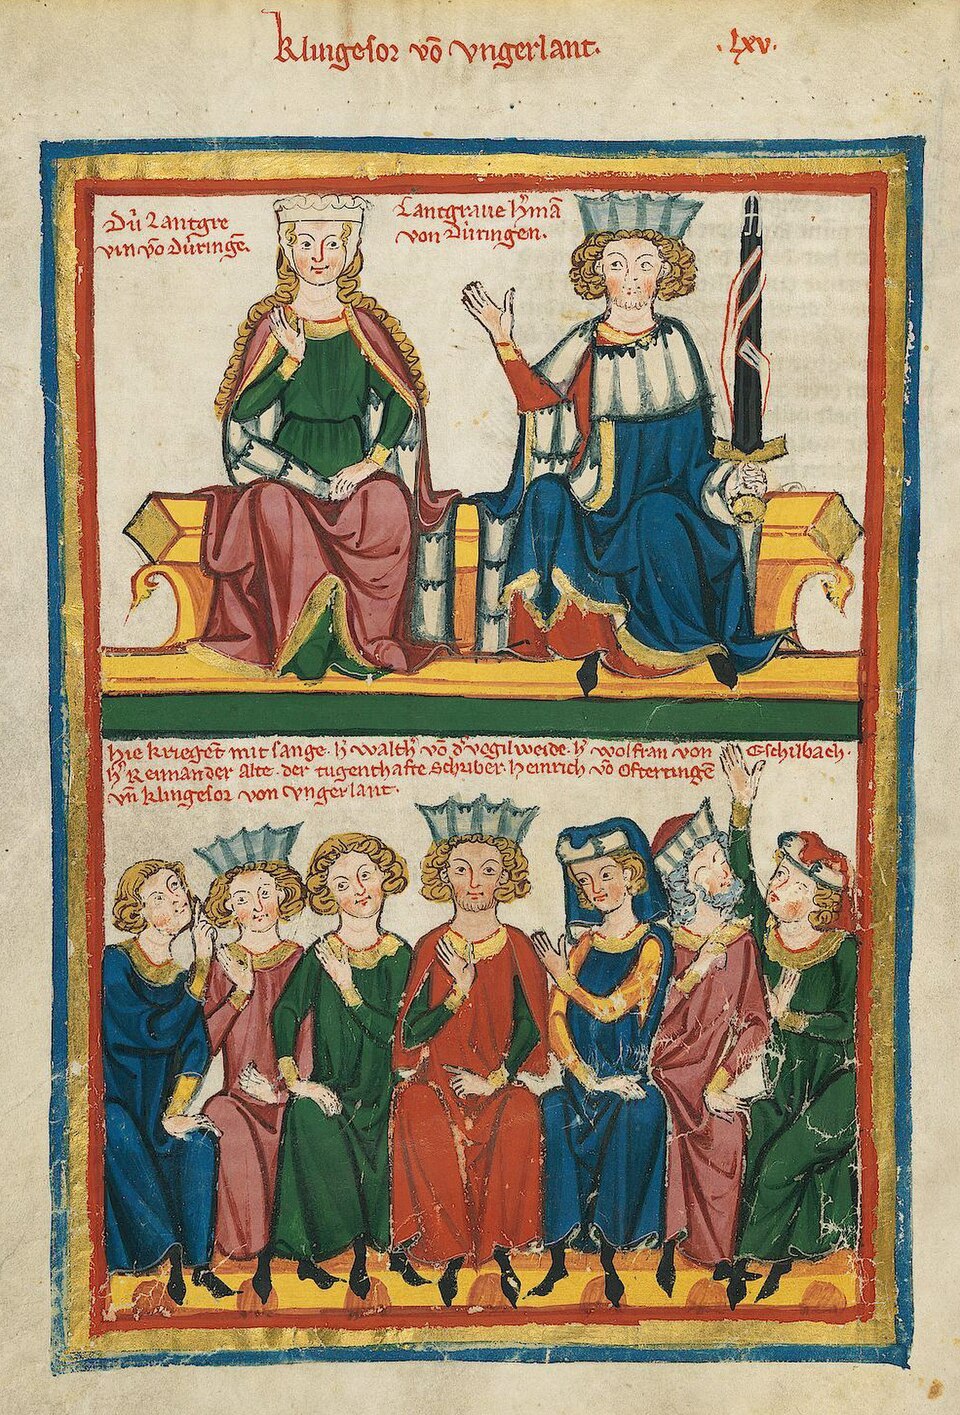 Klingesor võ vngerlant.
.lxv.
Dů Lantgre
vin võ Důringẽ.
Lantgraue h̾mã
von Důringen.
hie krieget mit sange. h̾ walth̾ võ d̾ vogilweide. h̾ wolfran von Eschilbach.
h̾ Reinander Alte. der tugenthafte Schriber. Heinrich võ Ofteringẽ
vñ klingesor von vngerlant.